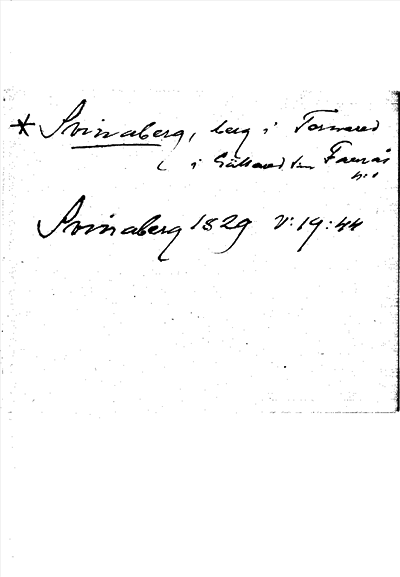 * Svinaberg, berg i Tornared
( i Gällared sn Faurås
hd
Svinaberg 1829 V:19:44